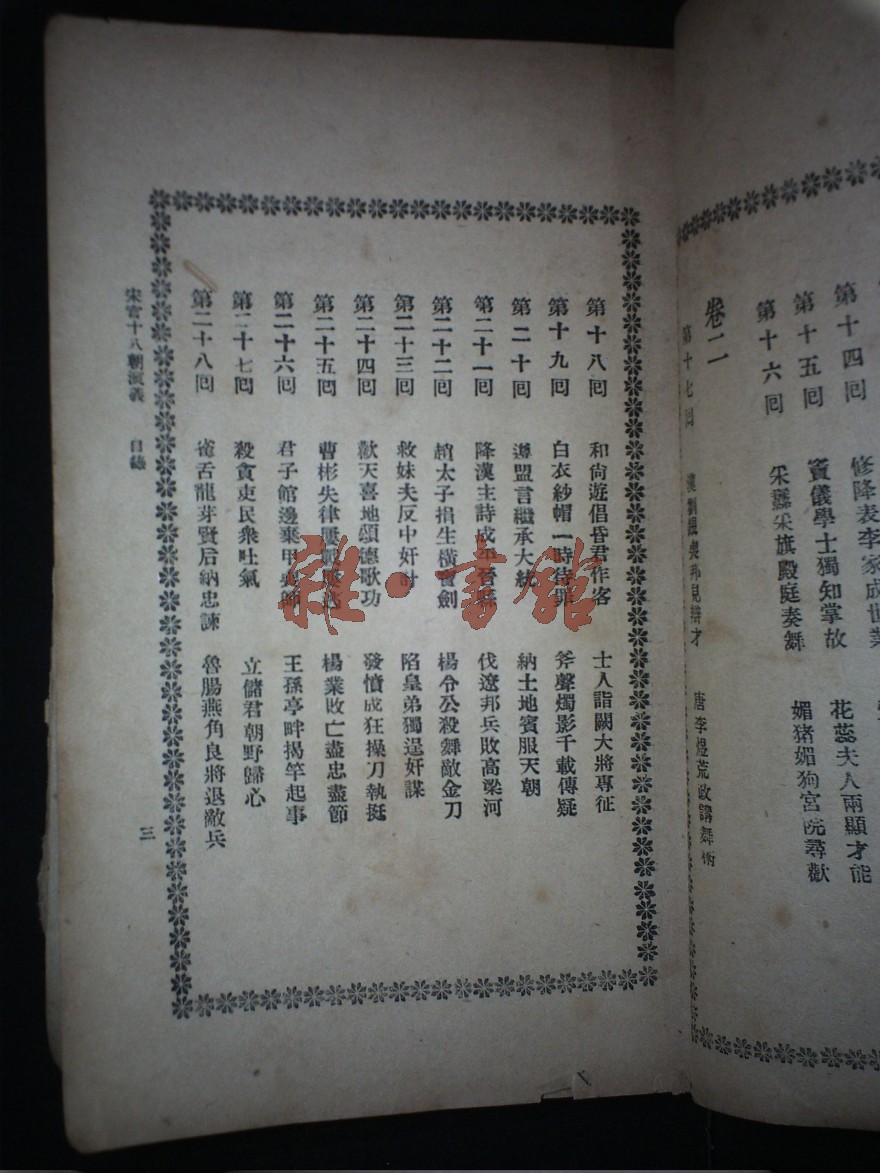 第十四回 修降表李家成世業
第十五回 竇儀學士獨知掌故 花蕊夫人兩顯才能
第十六回 采蠶采旗殿庭奏舞 媚猪媚狗宮院尋歡
卷二
第十七回 漢劉鋹奧邦見辯才 唐李煜荒政講舞術
第十八回 和尚遊倡昏君作客 士人詣闕大將專征
第十九回 白衣紗帽一時待罪 斧聲燭影千載傳疑
第二十回 遵盟言繼承大統 納土地賓服天朝
第二十一回 降漢主詩成平晉 伐遼邦兵敗高梁河
第二十二回 趙太子捐生橫寶劍 楊令公殺舞敵金刀
第二十三回 救妹夫反中奸計 陷皇弟獨逞奸謀
第二十四回 歡天喜地頌德歌功 發憤成狂操刀執挺
第二十五回 曹彬失律 楊業敗亡盡忠盡節
第二十六回 君子館邊棄甲喪師 王孫亭畔揭竿起事
第二十七回 殺貪吏民衆吐氣 立儲君朝野歸心
第二十八回 雀舌龍芽賢后納忠諫 魯腸燕角良將退敵兵
宋宮十八朝演義 目錄
三
雜·書館